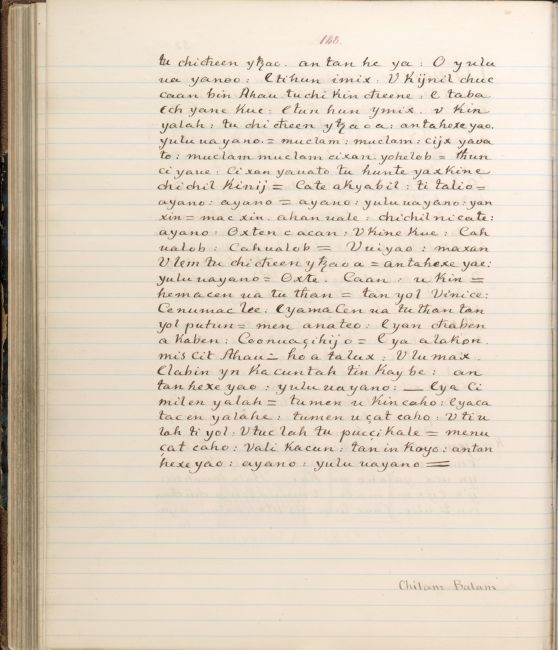 148.
tu chicħeen yꜩac. an tan he ya: O yulu
ua yanoo: Etihun imix: V Kijnil chuc
caan bin Ahau tuchi Kin cħeene: E taba
Ech yane Kue: Etun hun ymix. v Kin
yalah: tu chicħeen yꜩaoa: antahexe yao,
yulu ua yano = muclam: muclam: cijx yaua
to: muclam muclam cixan yohelob = thun
ci yaue: Ci xan yauato tu hunte yaxkine
chichil Kinij = Cate akyabil: ti talio =
ayano: ayano = ayano: yulu uayano: yan
xin = mac xin. ahan uale: chichil nicate:
ayano: Oxten cacan: V Kine Kue: Cah
ualob: Cahualob = Vuiyao: maxan
V lem tu chicħeen yꜩaoa = antahexe yae:
yulu uayano = Oxte. Caan: u Kin =
hemacen ua tu than = tan yol Vinice:
Cenumac lee: Eyama Cen ua tu than tan
yol putun = men anateo: Eyan cħaben
a Kaben: Coonuaçihijo = E ya alakon.
mis cit Ahau = ho a talux: V lu max.
Elabin yn Kacuntah tin Kay be: an
tanhexe yao: yulu uayano: — Eya Ci
milen yalah = tumen u kin caho: Eyaca
tac en yaláhe: tumen u çat caho: V tiu
lah ti yol: V tuc lah tu pucçi Kale = menu
çat caho: Vali Kacun: tan in Koyo: antan
hexe yao: ayano: yulu uayano =
Chilam Balam